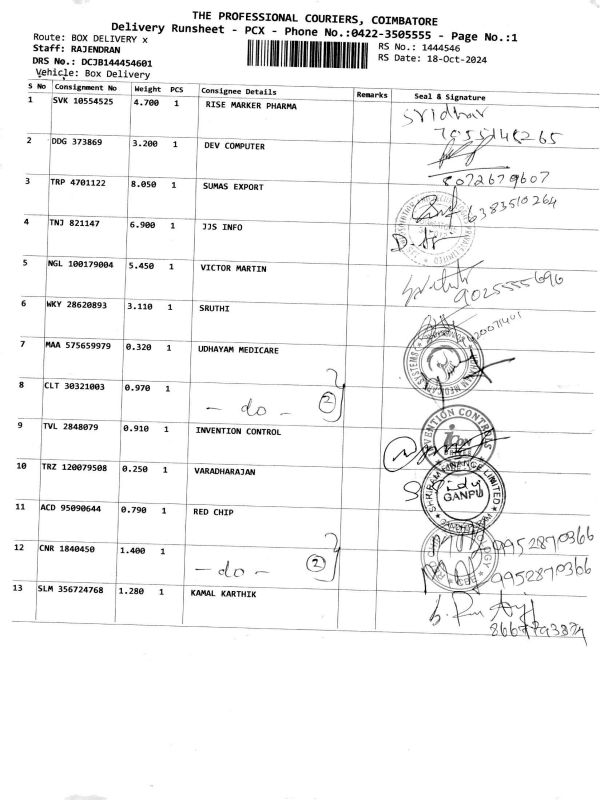 THE PROFESSIONAL COURIERS, COIMBATORE
Delivery Runsheet - PCX - Phone No.:0422-3505555 - Page No.:1
Route: BOX DELIVERY x
RS No.: 1444546
Staff: RAJENDRAN
RS Date: 18-Oct-2024
DRS No.: DCJB144454601
Vehicle: Box Delivery
S No Consignment No Weight PCS Consignee Details Remarks Seal & Signature
1 SVK 10554525 4.700 1 RISE MARKER PHARMA Sridhar
2 DDG 373869 3.200 1 DEV COMPUTER
8072679607
3 TRP 4701122 8.050 1 SUMAS EXPORT 6383510264
4 TNJ 821147 6.900 1 JJS INFO
5 NGL 100179004 5.450 1 VICTOR MARTIN
9025555696
6 WKY 28620893 3.110 1 SRUTHI
7 MAA 575659979 0.320 1 UDHAYAM MEDICARE
8 CLT 30321003 0.970 1 - do - 2
9 TVL 2848079 0.910 1 INVENTION CONTROL INVENTION CONTROLS icon
10 TRZ 120079508 0.250 1 VARADHARAJAN SHRIRAM FINANCE LIMITED GANPU
11 ACD 95090644 0.790 1 RED CHIP 9952870366
12 CNR 1840450 1.400 1 - do - 2 9952870366
13 SLM 356724768 1.280 1 KAMAL KARTHIK